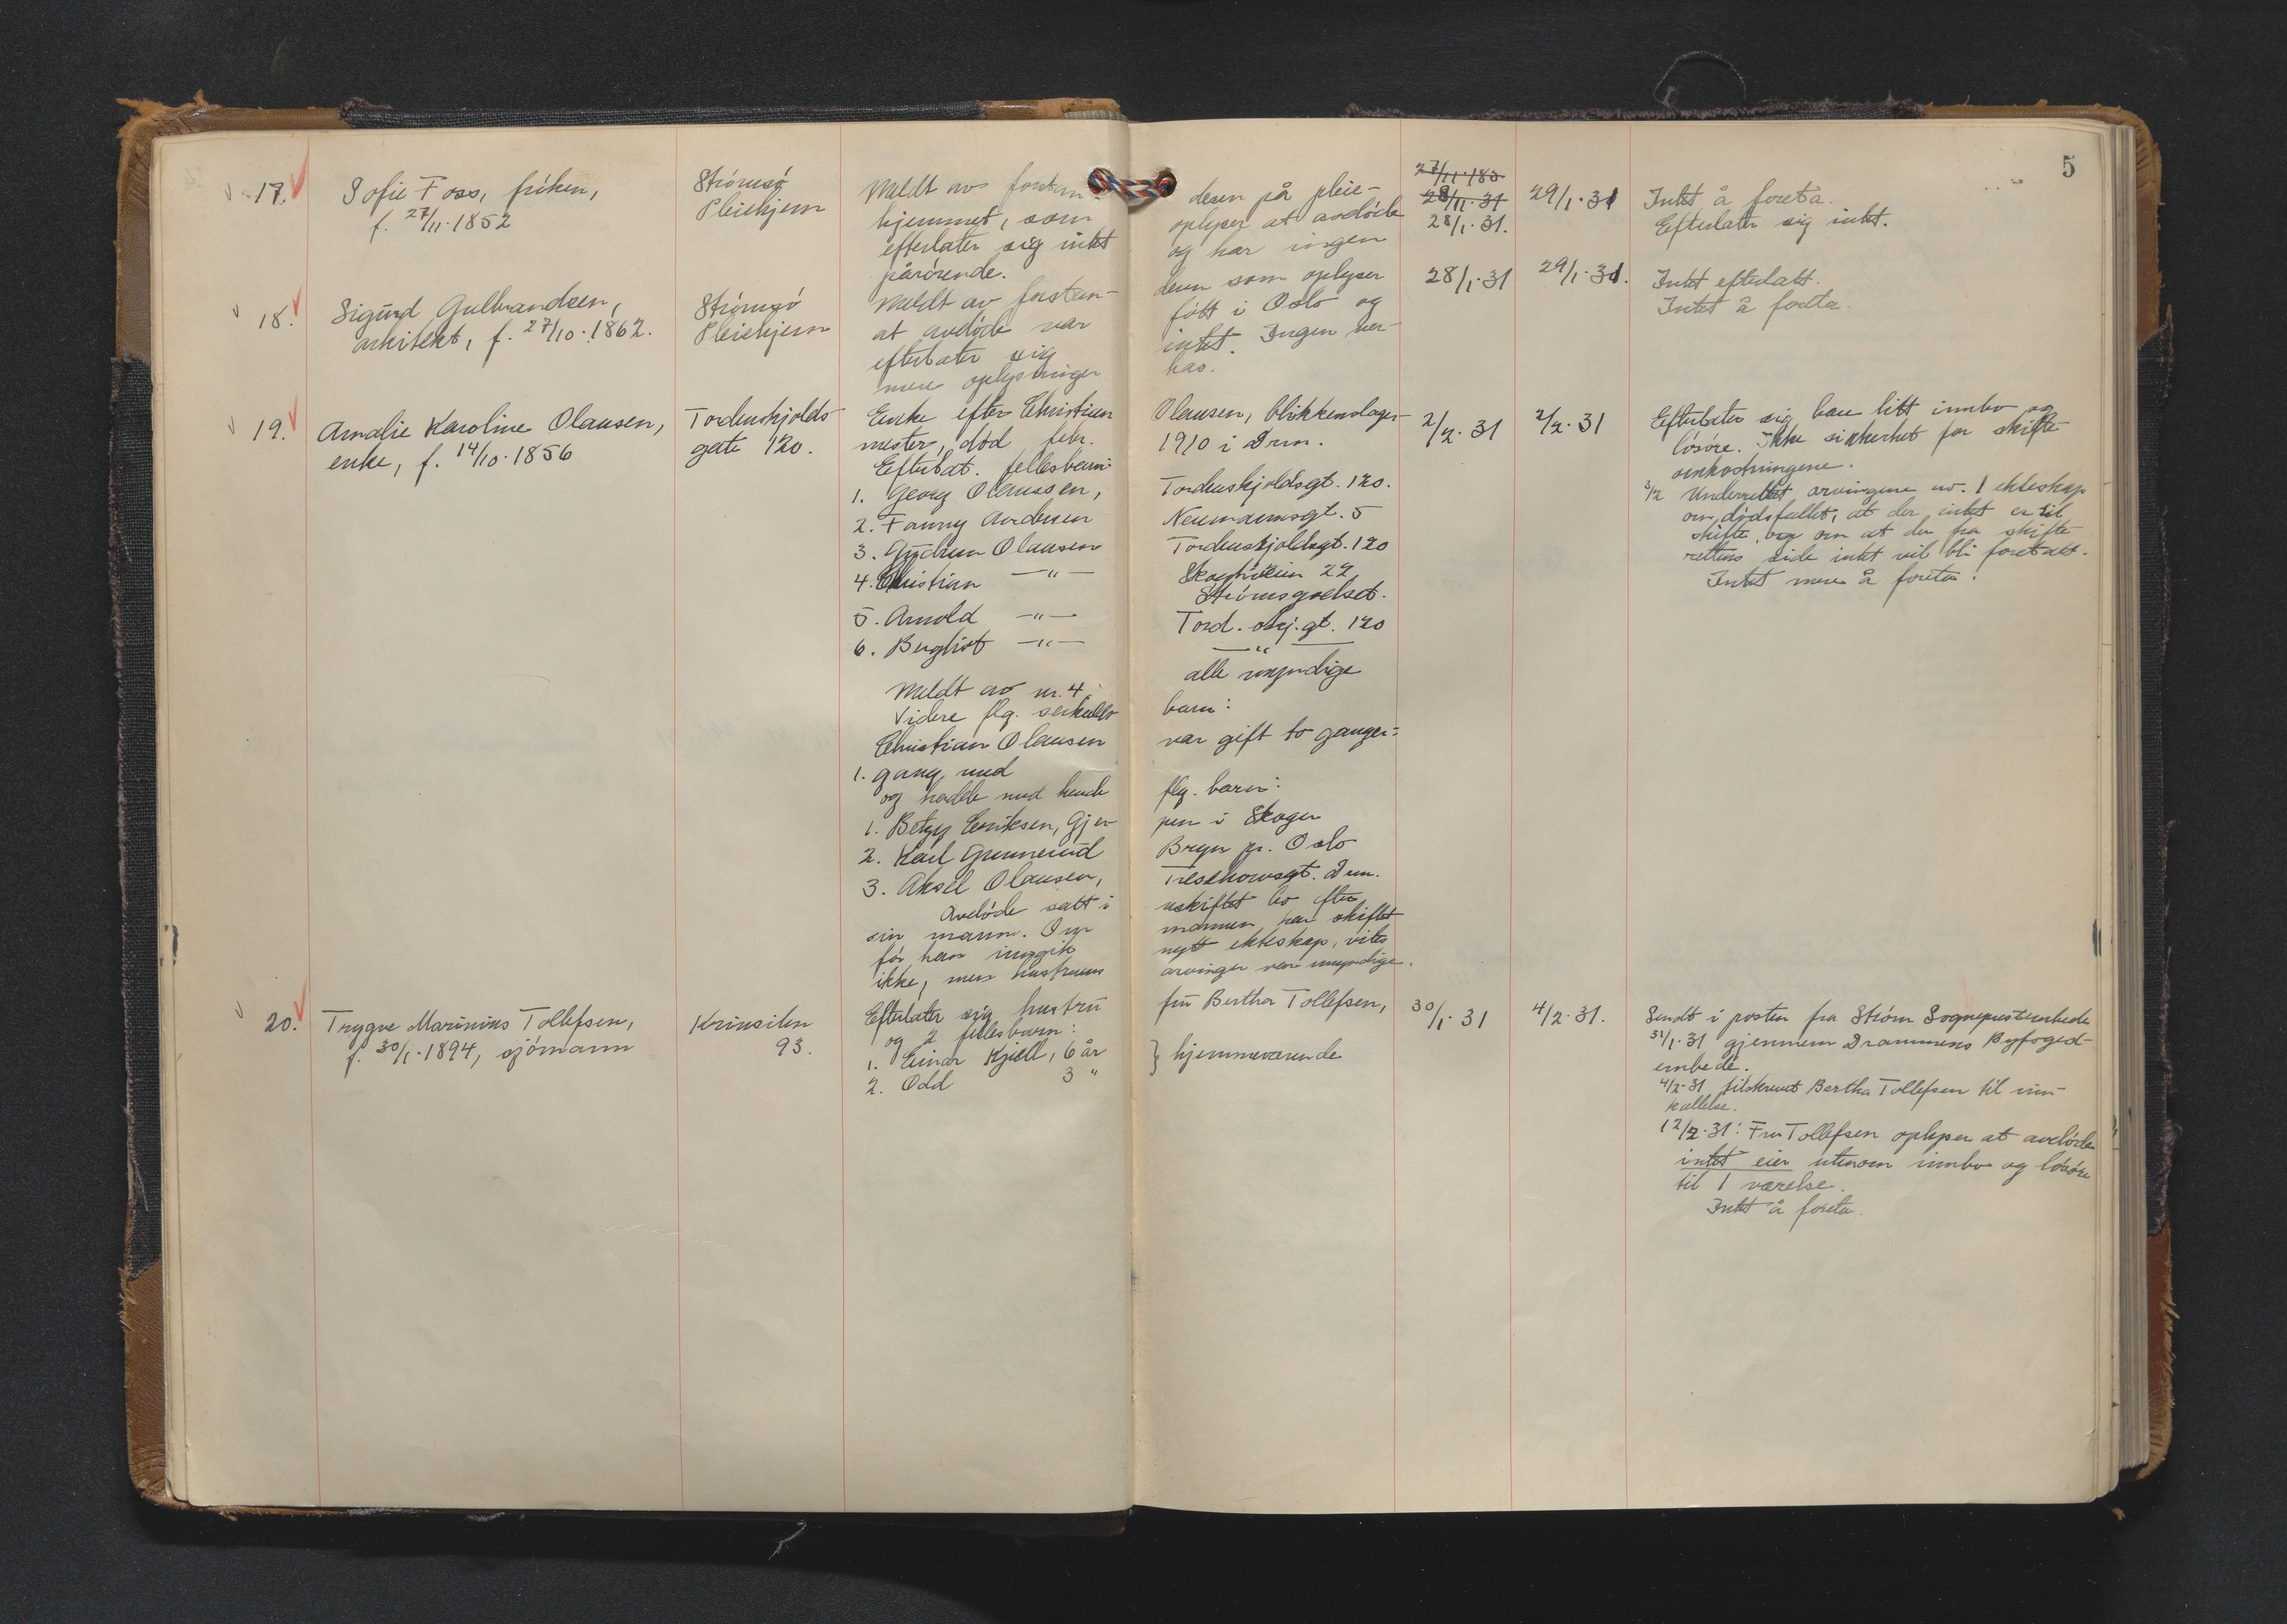 5
17. Sofie Foss, fröken,
f. 27/11.1852
Strömsö
Pleiehjem
Meldt av forstan-
hjemmet, som
efterlater sig intet
pårörende.
deren på pleie-
oplyser at avdöde
og har ingen
27/11.185
28/11.31
28/1.31.
29/1.31
Intet å foreta.
Efterlater sig intet.
18. Sigurd Gulbrandsen,
arkitekt, f. 27/10.1862.
Strömsö
Pleiehjem
Meldt av forstan-
at avdöde var
efterlater sig
mere oplysninger
deren som oplyser
fött i Oslo og
intet. Ingen ver-
has.
28/1.31
29/1.31.
Intet efterlatt.
Intet å foreta.
19. Amalie Karoline Olausen,
enke, f. 14/10.1856
Tordenskjolds-
gate 120.
Enke efter Christian
mester, död febr.
Efterlat. fellesbarn:
1. Georg Olaussen,
2. Fanny Andersen
3. Gudrun Olausen
4. Christian —"—
5. Arnold —"—
6. Bergliot —"—
Meldt av nr. 4.
Videre flg. særkulls
Christian Olausen
1. gang med
og hadde med hende
1. Betzy Eriksen, Gjer-
2. Karl Grennerud
3. Aksel Olausen,
Avdöde satt i
sin mann. Om
för han inngikk
ikke, men hustruens
Olausen, blikkenslager-
1910 i Drm.
Tordenskjoldsgt. 120.
Neumannsgt. 5
Tordenskjoldsgt. 120
Skogheim 22
Strömsgodset.
Tord.skj.gt. 120
—"—
alle myndige
barn:
var gift to ganger:
flg. barn:
pen i Skoger
Bryn pr. Oslo
Treschowsgt. Drm.
uskiftet bo efter
mannen har skiftet
nytt ekteskap, vites
arvinger var umyndige.
2/2.31
2/2.31
Efterlater sig bare litt innbo og
lösöre. Ikke sikkerhet for skifte-
omkostningene.
3/2 Underrettet arvingene av 1 ekteskap
om dödsfallet, at der intet er til
skifte, og om at der fra skifte-
rettens side intet vil bli foretatt.
Intet mere å foreta.
20. Trygve Marinius Tollefsen,
f. 30/1.1894, sjömann
Krinsilen
93.
Efterlater sig hustru
og 2 fellesbarn:
1. Einar Kjell, 6 år
2. Odd 3 "
fru Bertha Tollefsen,
} hjemmeværende
30/1.31
4/2.31.
Sendt i posten fra Ström Sogneprestembede
31/1.31 gjennem Drammens Byfoged-
embede.
4/2.31 tilskrevet Bertha Tollefsen til inn-
kallelse.
12/2.31: Fru Tollefsen oplyser at avdöde
intet eier utenom innbo og lösöre
til 1 værelse.
Intet å foreta.